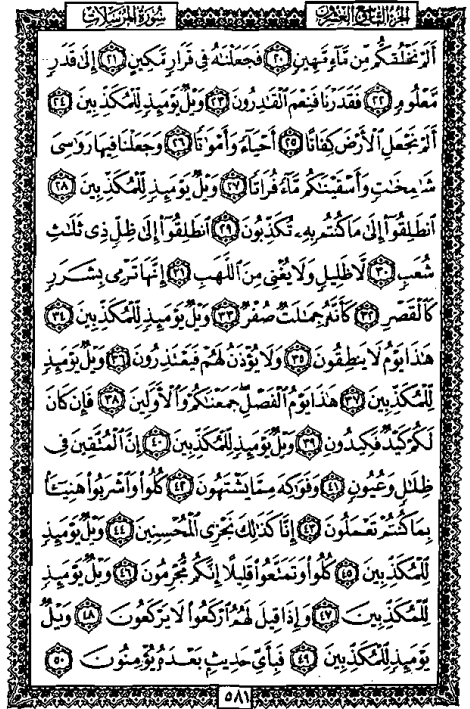 سُورَةُ الْمُرْسَلَاتِ الجزء التاسع والعشرون
أَلَمْ نَخْلُقكُّم مِّن مَّآءٍ مَّهِينٍ ﴿٢٠﴾ فَجَعَلْنَٰهُ فِى قَرَارٍ مَّكِينٍ ﴿٢١﴾ إِلَىٰ قَدَرٍ
مَّعْلُومٍ ﴿٢٢﴾ فَقَدَرْنَا فَنِعْمَ ٱلْقَٰدِرُونَ ﴿٢٣﴾ وَيْلٌ يَوْمَئِذٍ لِّلْمُكَذِّبِينَ ﴿٢٤﴾
أَلَمْ نَجْعَلِ ٱلْأَرْضَ كِفَاتًا ﴿٢٥﴾ أَحْيَآءً وَأَمْوَٰتًا ﴿٢٦﴾ وَجَعَلْنَا فِيهَا رَوَٰسِىَ
شَٰمِخَٰتٍ وَأَسْقَيْنَٰكُم مَّآءً فُرَاتًا ﴿٢٧﴾ وَيْلٌ يَوْمَئِذٍ لِّلْمُكَذِّبِينَ ﴿٢٨﴾
ٱنطَلِقُوٓا۟ إِلَىٰ مَا كُنتُم بِهِۦ تُكَذِّبُونَ ﴿٢٩﴾ ٱنطَلِقُوٓا۟ إِلَىٰ ظِلٍّ ذِى ثَلَٰثِ
شُعَبٍ ﴿٣٠﴾ لَّا ظَلِيلٍ وَلَا يُغْنِى مِنَ ٱللَّهَبِ ﴿٣١﴾ إِنَّهَا تَرْمِى بِشَرَرٍ
كَٱلْقَصْرِ ﴿٣٢﴾ كَأَنَّهُۥ جِمَٰلَتٌ صُفْرٌ ﴿٣٣﴾ وَيْلٌ يَوْمَئِذٍ لِّلْمُكَذِّبِينَ ﴿٣٤﴾
هَٰذَا يَوْمُ لَا يَنطِقُونَ ﴿٣٥﴾ وَلَا يُؤْذَنُ لَهُمْ فَيَعْتَذِرُونَ ﴿٣٦﴾ وَيْلٌ يَوْمَئِذٍ
لِّلْمُكَذِّبِينَ ﴿٣٧﴾ هَٰذَا يَوْمُ ٱلْفَصْلِ جَمَعْنَٰكُمْ وَٱلْأَوَّلِينَ ﴿٣٨﴾ فَإِن كَانَ
لَكُمْ كَيْدٌ فَكِيدُونِ ﴿٣٩﴾ وَيْلٌ يَوْمَئِذٍ لِّلْمُكَذِّبِينَ ﴿٤٠﴾ إِنَّ ٱلْمُتَّقِينَ فِى
ظِلَٰلٍ وَعُيُونٍ ﴿٤١﴾ وَفَوَٰكِهَ مِمَّا يَشْتَهُونَ ﴿٤٢﴾ كُلُوا۟ وَٱشْرَبُوا۟ هَنِيٓـًٔۢا
بِمَا كُنتُمْ تَعْمَلُونَ ﴿٤٣﴾ إِنَّا كَذَٰلِكَ نَجْزِى ٱلْمُحْسِنِينَ ﴿٤٤﴾ وَيْلٌ يَوْمَئِذٍ
لِّلْمُكَذِّبِينَ ﴿٤٥﴾ كُلُوا۟ وَتَمَتَّعُوا۟ قَلِيلًا إِنَّكُم مُّجْرِمُونَ ﴿٤٦﴾ وَيْلٌ يَوْمَئِذٍ
لِّلْمُكَذِّبِينَ ﴿٤٧﴾ وَإِذَا قِيلَ لَهُمُ ٱرْكَعُوا۟ لَا يَرْكَعُونَ ﴿٤٨﴾ وَيْلٌ
يَوْمَئِذٍ لِّلْمُكَذِّبِينَ ﴿٤٩﴾ فَبِأَىِّ حَدِيثٍۭ بَعْدَهُۥ يُؤْمِنُونَ ﴿٥٠﴾
٥٨١